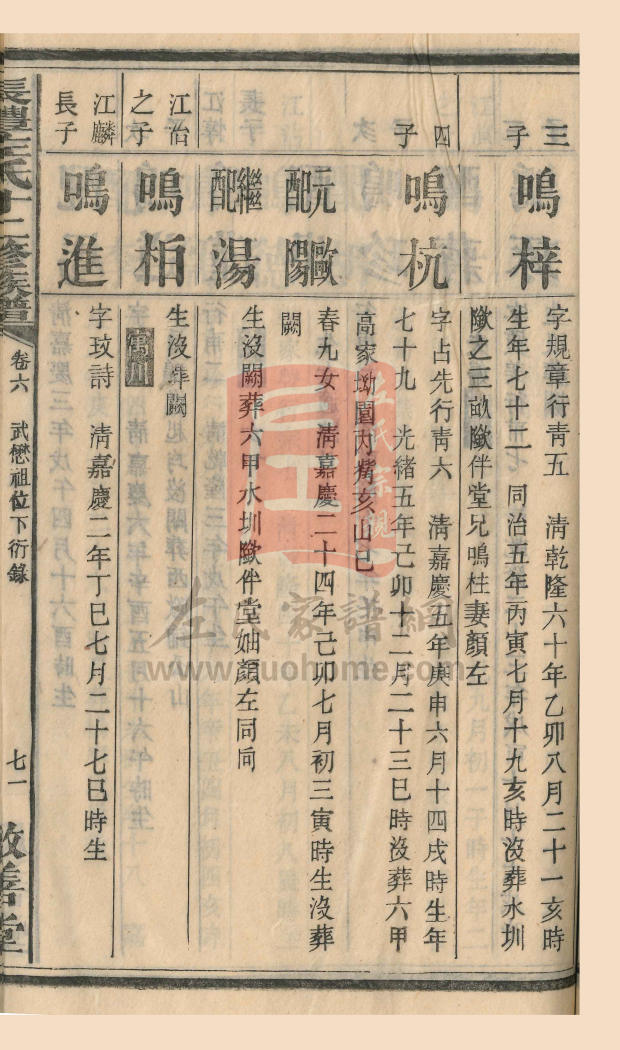 三子
鳴梓
字規章行靑五　淸乾隆六十年乙卯八月二十一亥時
生年七十二　同治五年丙寅七月十九亥時沒葬水圳
歘之三畝歘伴堂兄鳴桂妻顏左
四子
鳴杭
字占先行靑六　淸嘉慶五年庚申六月十四戌時生年
七十九　光緒五年己卯十二月二十三巳時沒葬六甲
高家坳園內嘴亥山巳
元配歐陽
春九女　淸嘉慶二十四年己卯七月初三寅時生沒葬
闕
繼配湯
生沒闕葬六甲水圳歘伴堂妯顏左同向
江佁之子
鳴栢
生沒葬闕
寓川
江麟長子
鳴進
字玟詩　淸嘉慶二年丁巳七月二十七巳時生
長豊左氏十二修族譜
卷六　武懋祖位下衍錄
七一
敦善堂
左氏宗親
左氏家譜網
www.zuohome.com